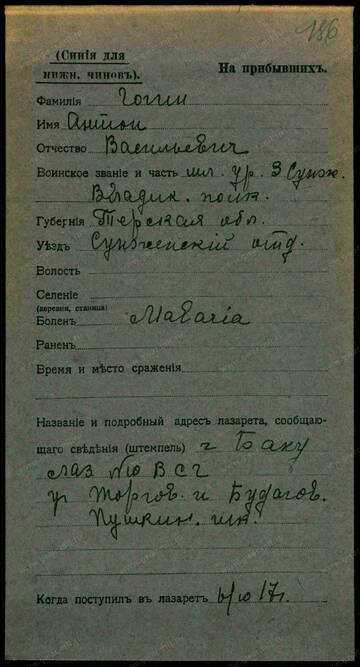 186
(Синія для
нижн. чиновъ).
На прибывшихъ.
Фамилія Гоггин
Имя Антон
Отчество Васильевич
Воинское званіе и часть мл. ур. 3 Сунж.
Владик. полк.
Губернія Терская обл.
Уѣздъ Сунженскій отд.
Волость
Селеніе
(деревня, станица)
Боленъ Малагіа
Раненъ
Время и мѣсто сраженія
Названіе и подробный адресъ лазарета, сообщаю-
щаго свѣдѣнія (штемпель) г Баку
лаз № 10 В С Г
уг Торгов. и Будагов.
Пушкин.
Когда поступилъ въ лазаретъ 6/10 17г.